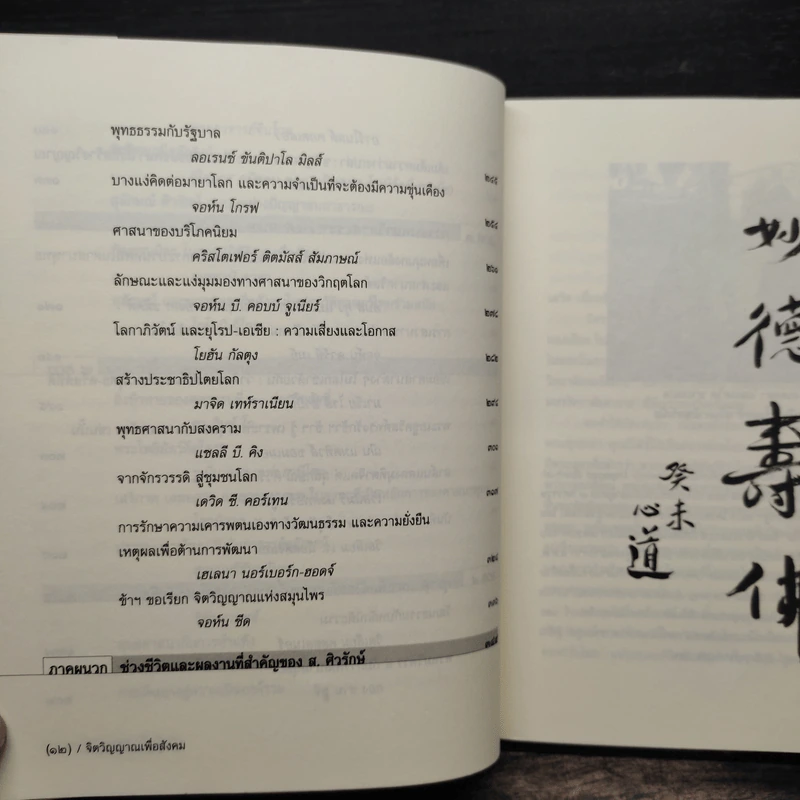 พุทธธรรมกับรัฐบาล
ลอเรนซ์ ขันติปาโล มิลส์
บางแง่คิดต่อมายาโลก และความจำเป็นที่จะต้องมีความขุ่นเคือง ๒๔๕
จอห์น โกรฟ
ศาสนาของบริโภคนิยม ๒๕๔
คริสโตเฟอร์ ติตมัสส์ สัมภาษณ์
ลักษณะและแง่มุมมองทางศาสนาของวิกฤตโลก ๒๖๐
จอห์น บี. คอบบ์ จูเนียร์
โลกาภิวัตน์ และยุโรป-เอเชีย : ความเสี่ยงและโอกาส ๒๗๔
โยฮัน กัลตุง
สร้างประชาธิปไตยโลก ๒๘๒
มาจิด เทห์ราเนียน
พุทธศาสนากับสงคราม ๒๙๔
แซลลี บี. คิง
จากจักรวรรดิ สู่ชุมชนโลก ๓๐๐
เดวิด ซี. คอร์เทน
การรักษาความเคารพตนเองทางวัฒนธรรม และความยั่งยืน ๓๑๗
เหตุผลเพื่อต้านการพัฒนา
เฮเลนา นอร์เบอร์ก-ฮอดจ์ ๓๒๘
ข้าฯ ขอเรียก จิตวิญญาณแห่งสมุนไพร
จอห์น ซีด
ภาคผนวก ช่วงชีวิตและผลงานที่สำคัญของ ส. ศิวรักษ์
(๑๒) / จิตวิญญาณเพื่อสังคม
妙德壽佛
癸未
心道